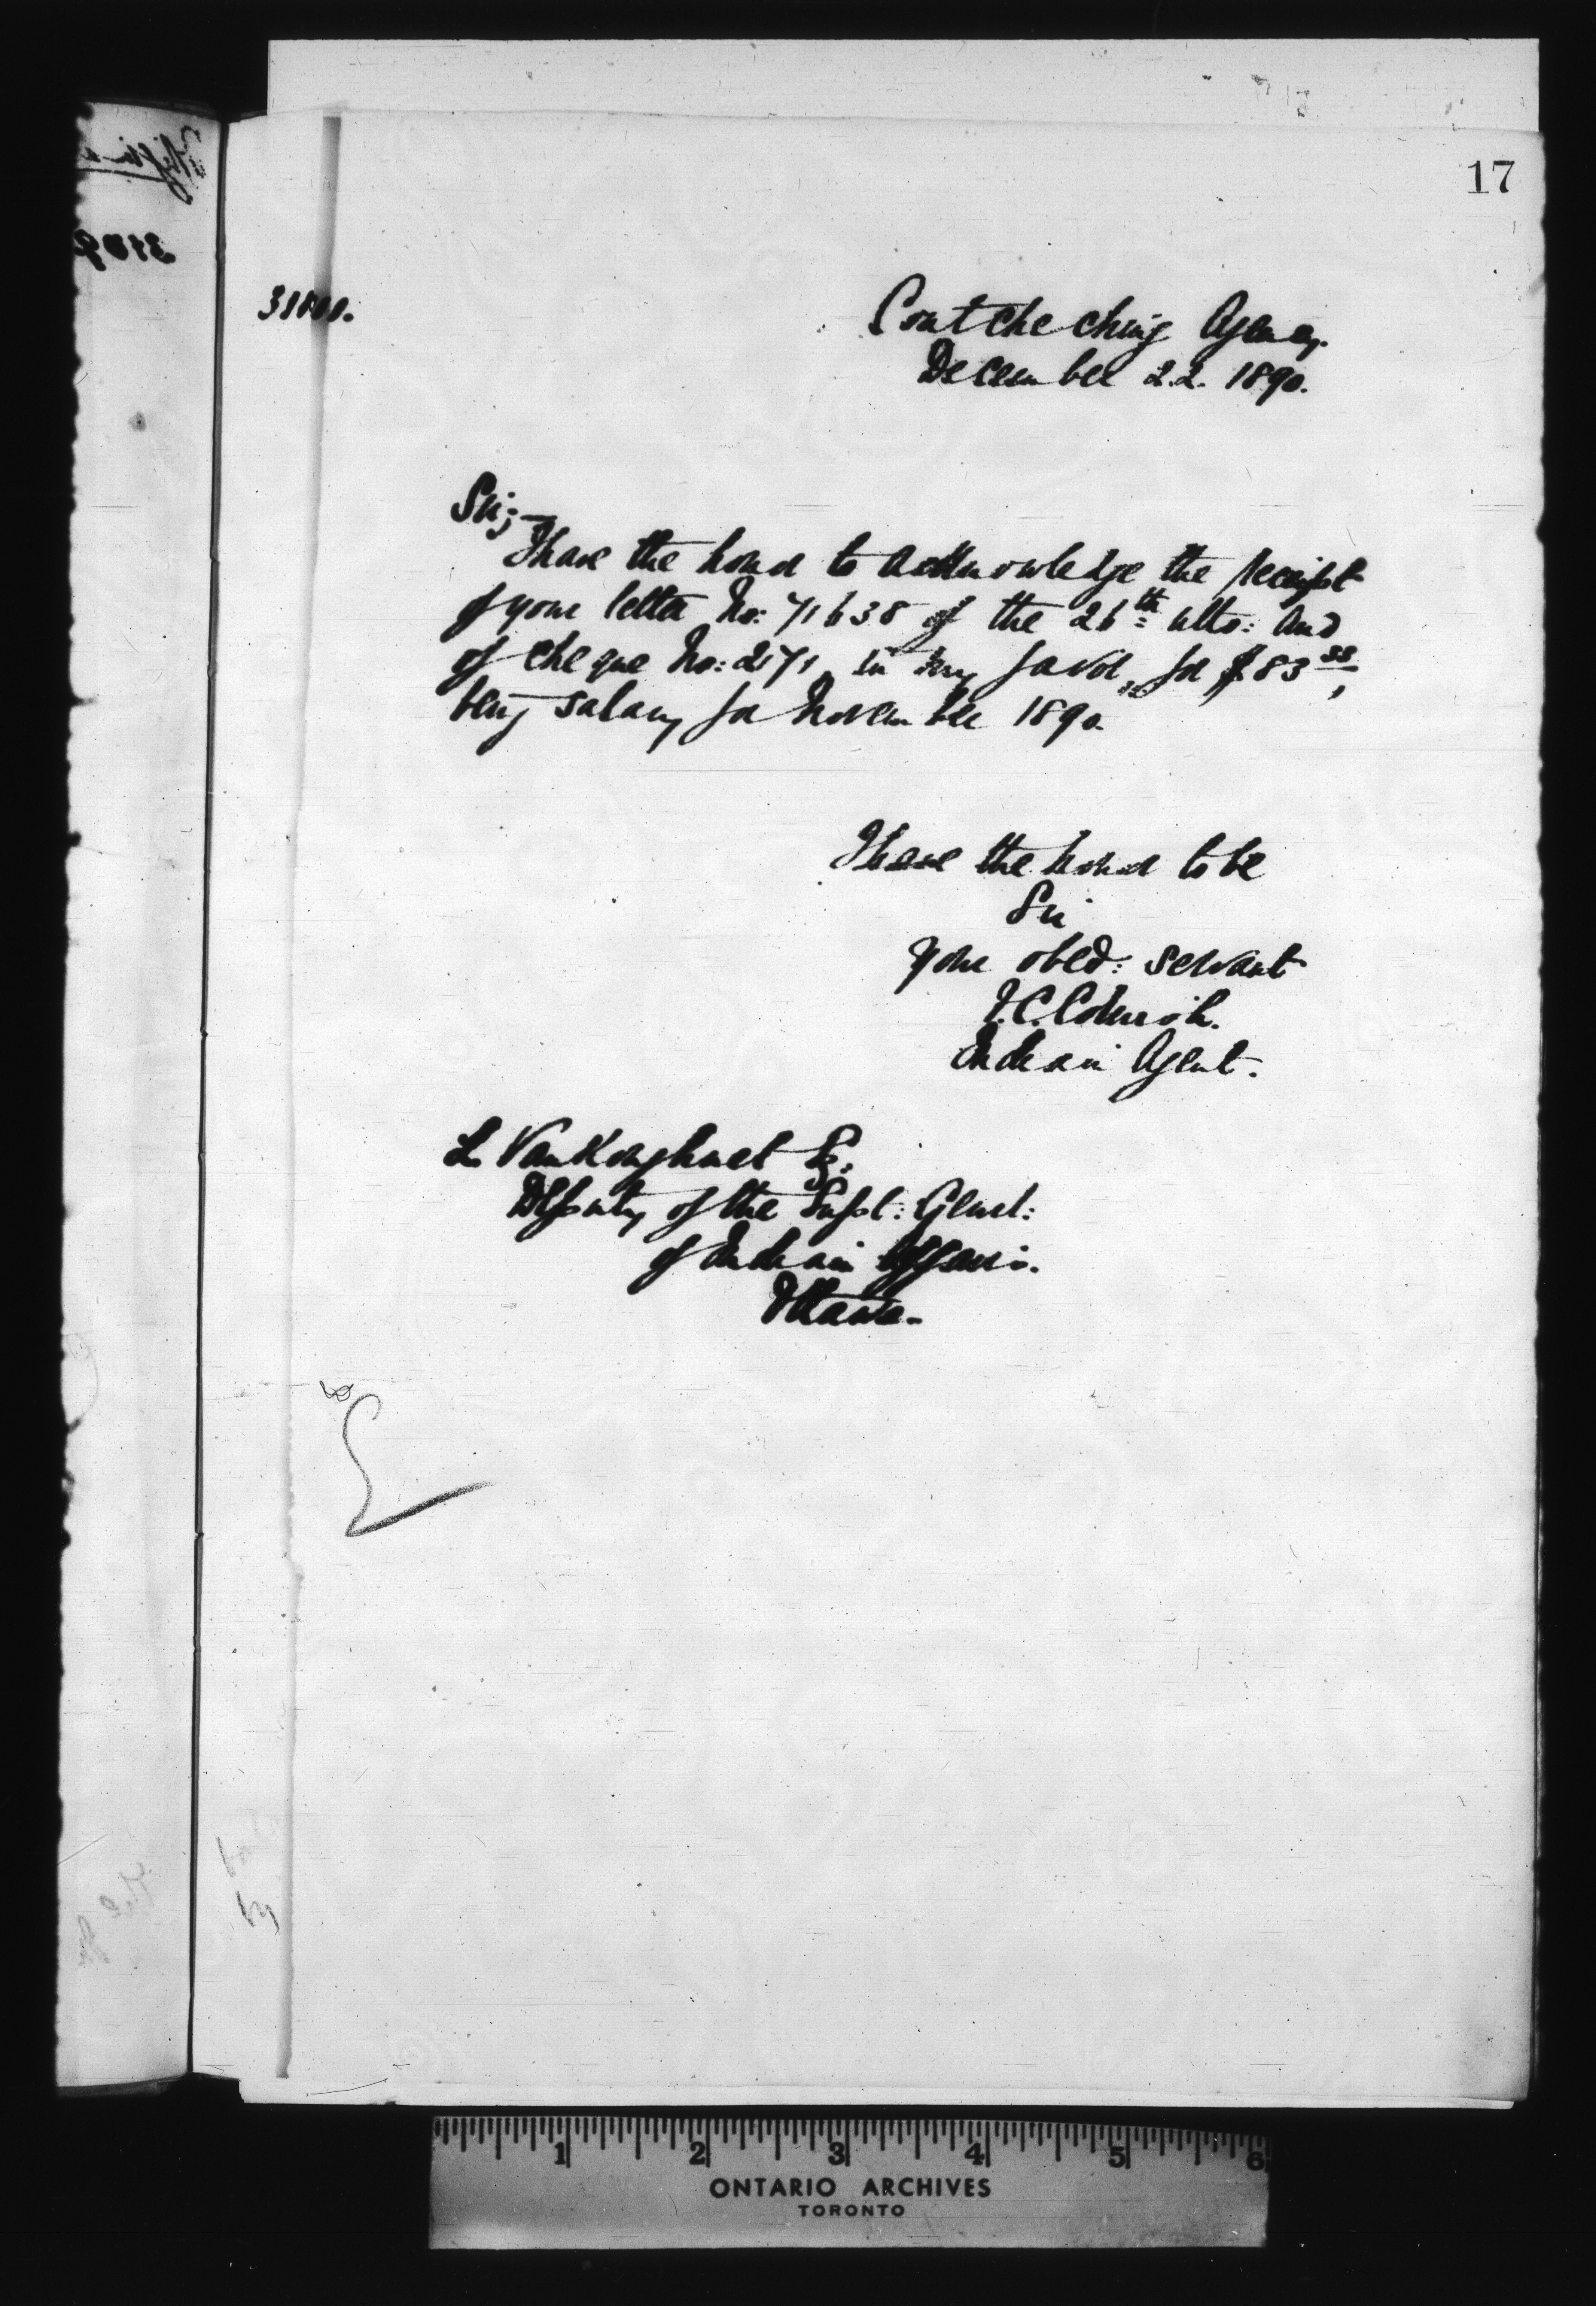 17
Coutcheching Agency.
December 22. 1890.
Sir;—
I have the honor to acknowledge the receipt
of your letter No: 71638 of the 26th ulto: and
of cheque No: 2171, in my favor, for $83 33,
being salary for November 1890.
I have the honor to be
Sir
your obed: servant
Indian Agent.
L. VanKoughnet Esq.
Deputy of the Supt: Genl:
of Indian Affairs.
Ottawa.
1 2 3 4 5 6
ONTARIO ARCHIVES
TORONTO